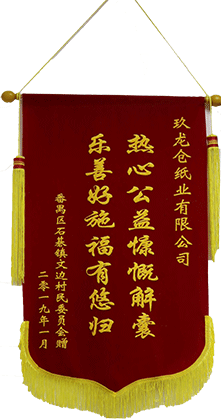 玖龙仓纸业有限公司
热心公益慷慨解囊
乐善好施福有悠归
番禺区石碁镇文边村民委员会赠
二零一九年一月